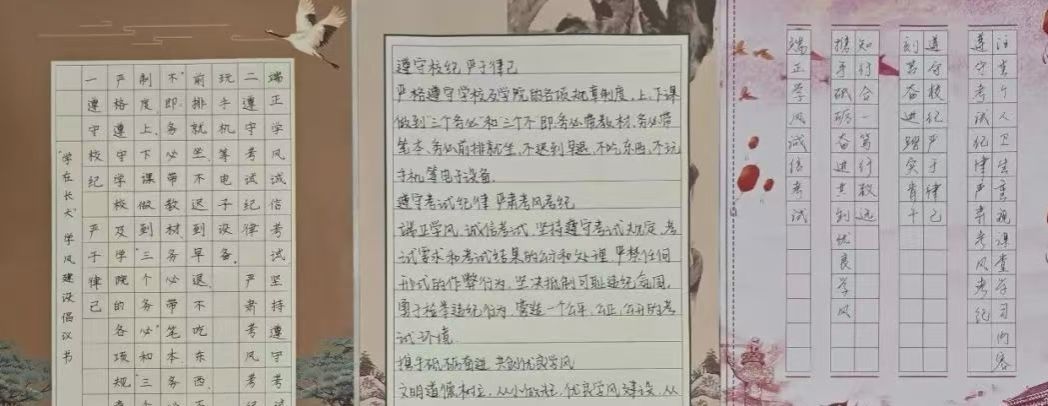 “学在长大”学风建设倡议书
一 遵守校纪 严于律己
严格遵守学校及学院的各项规
制度,上、下课做到“三个务必”和“三
不”,即务必带教材、务必带笔本、务
前排就坐、不迟到早退、不吃东西、
玩手机等电子设备。
二 遵守考试纪律 严肃考风考纪
端正学风、诚信考试、坚持遵守考试
遵守校纪 严于律己
严格遵守学校及学院的各项规章制度,上、下课
做到“三个务必”和“三个不”即务必带教材、务必带
笔本、务必前排就坐、不迟到早退、不吃东西、不玩
手机等电子设备.
遵守考试纪律 严肃考风考纪
端正学风、诚信考试、坚持遵守考试规定、考
试要求和考试结果的公行和处理 严禁任何
形式的作弊行为、坚决抵制可耻违纪氛围,
勇于检举违纪行为、营造一个公平、公正、公开的考
试环境.
携手砥砺奋进 共创优良学风
文明道德树立,从小做起,优良学风建设、从
端正学风诚信考试
携手砥砺奋进共创优良学风
知行合一笃行致远
刻苦奋进
遵守校纪严于律己
遵守考试纪律严肃考风考纪
个人卫生 视课 学习内容